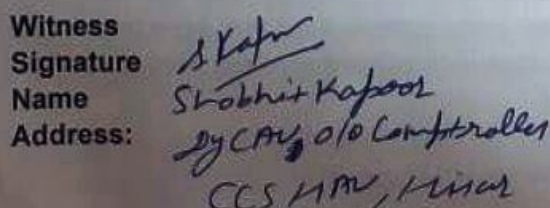 Witness
Signature S Kapoor
Name Shobhit Kapoor
Address: Dy CAO, O/o Comptroller
CCS HAU, Hisar